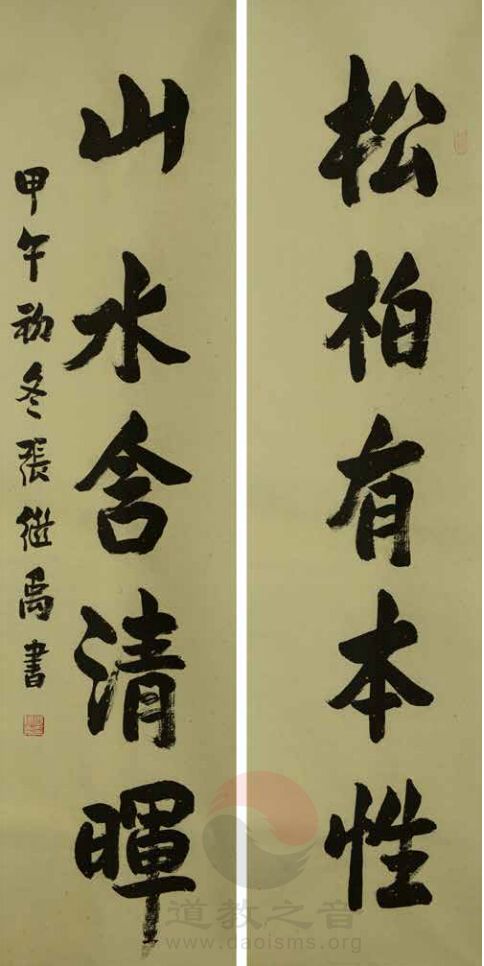 松柏有本性
山水含清暉
甲午初冬張繼禹書
道教之音
www.daoisms.org